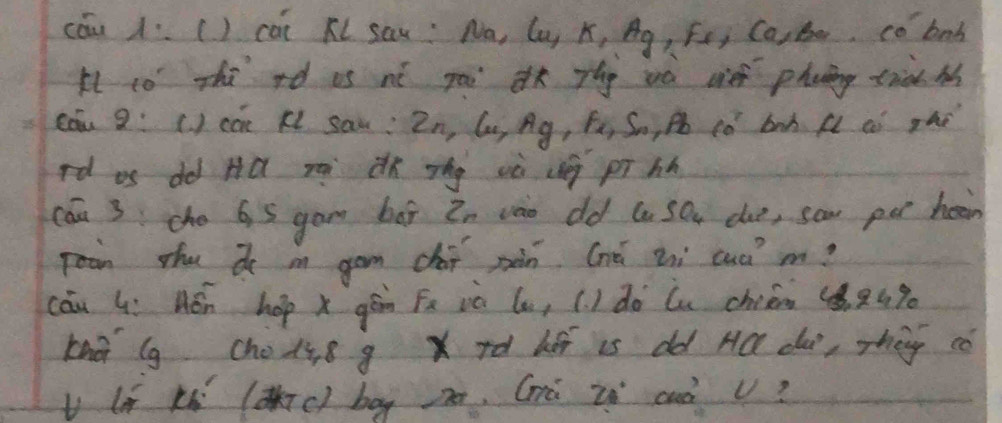 câu 1: (.) các KL sau: Na, Cu, K, Ag, Fe, Ca, Ba. có bnh
KL có thể td vs nc tại đk thg và viết phương trình hh
câu 2: (.) các KL sau: Zn, Cu, Ag, Fe, Sn, Pb có bnh KL có thể
td vs dd HCl tại đk thg và viết PT hh
câu 3: cho 6,5 gam bột Zn vào dd CuSO4 dư, sau pư hoàn
toàn thu đc m gam chất rắn. Giá trị của m?
câu 4: Hỗn hợp X gồm Fe và Cu, (.) đó Cu chiếm 43,24%
khối lg. Cho 14,8 g X td hết vs dd HCl dư, thấy có
V lít khí (đktc) bay ra. Giá trị của V?